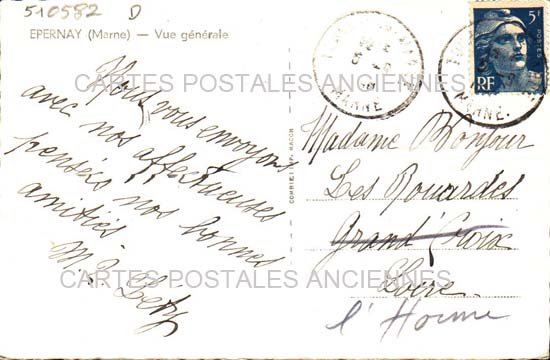 510582 D
EPERNAY (Marne) — Vue générale
Nous vous envoyons
avec nos affectueuses
pensées nos bonnes
amitiés
M. J.
COMBIER IMP. MACON
MARNE
MARNE
5F
POSTES
RF
Madame Bonjour
Les Rouardes
Grand'Croix
Loire
l'Horme
CARTES POSTALES ANCIENNES
CARTES POSTALES ANCIENNES